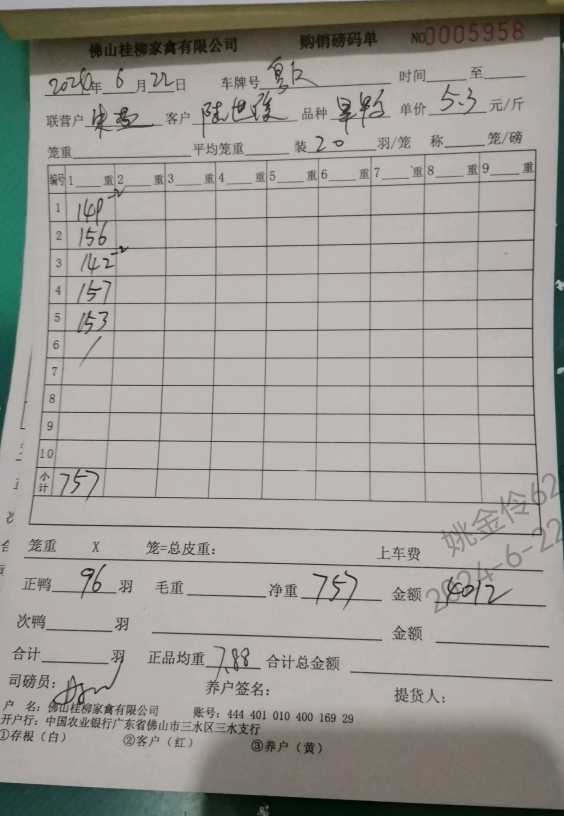 佛山桂柳家禽有限公司 购销磅码单 NO 0005958
2024年 6 月 22 日 车牌号 时间 至
联营户 客户 陆世 品种 单价 5.3 元/斤
笼重 平均笼重 装 20 羽/笼 称 笼/磅
编号 1 重 2 重 3 重 4 重 5 重 6 重 7 重 8 重 9 重
1 149-2
2 156
3 142-2
4 157
5 153
6 /
7
8
9
10
小计 757
笼重 X 笼=总皮重: 上车费
正鸭 96 羽 毛重 净重 757 金额 4012
次鸭 羽 金额
合计 羽 正品均重 7.88 合计总金额
司磅员: 养户签名: 提货人:
户 名: 佛山桂柳家禽有限公司 账号: 444 401 010 400 169 29
开户行: 中国农业银行广东省佛山市三水区三水支行
①存根(白) ②客户(红) ③养户(黄)
姚金伶62
2024-6-22